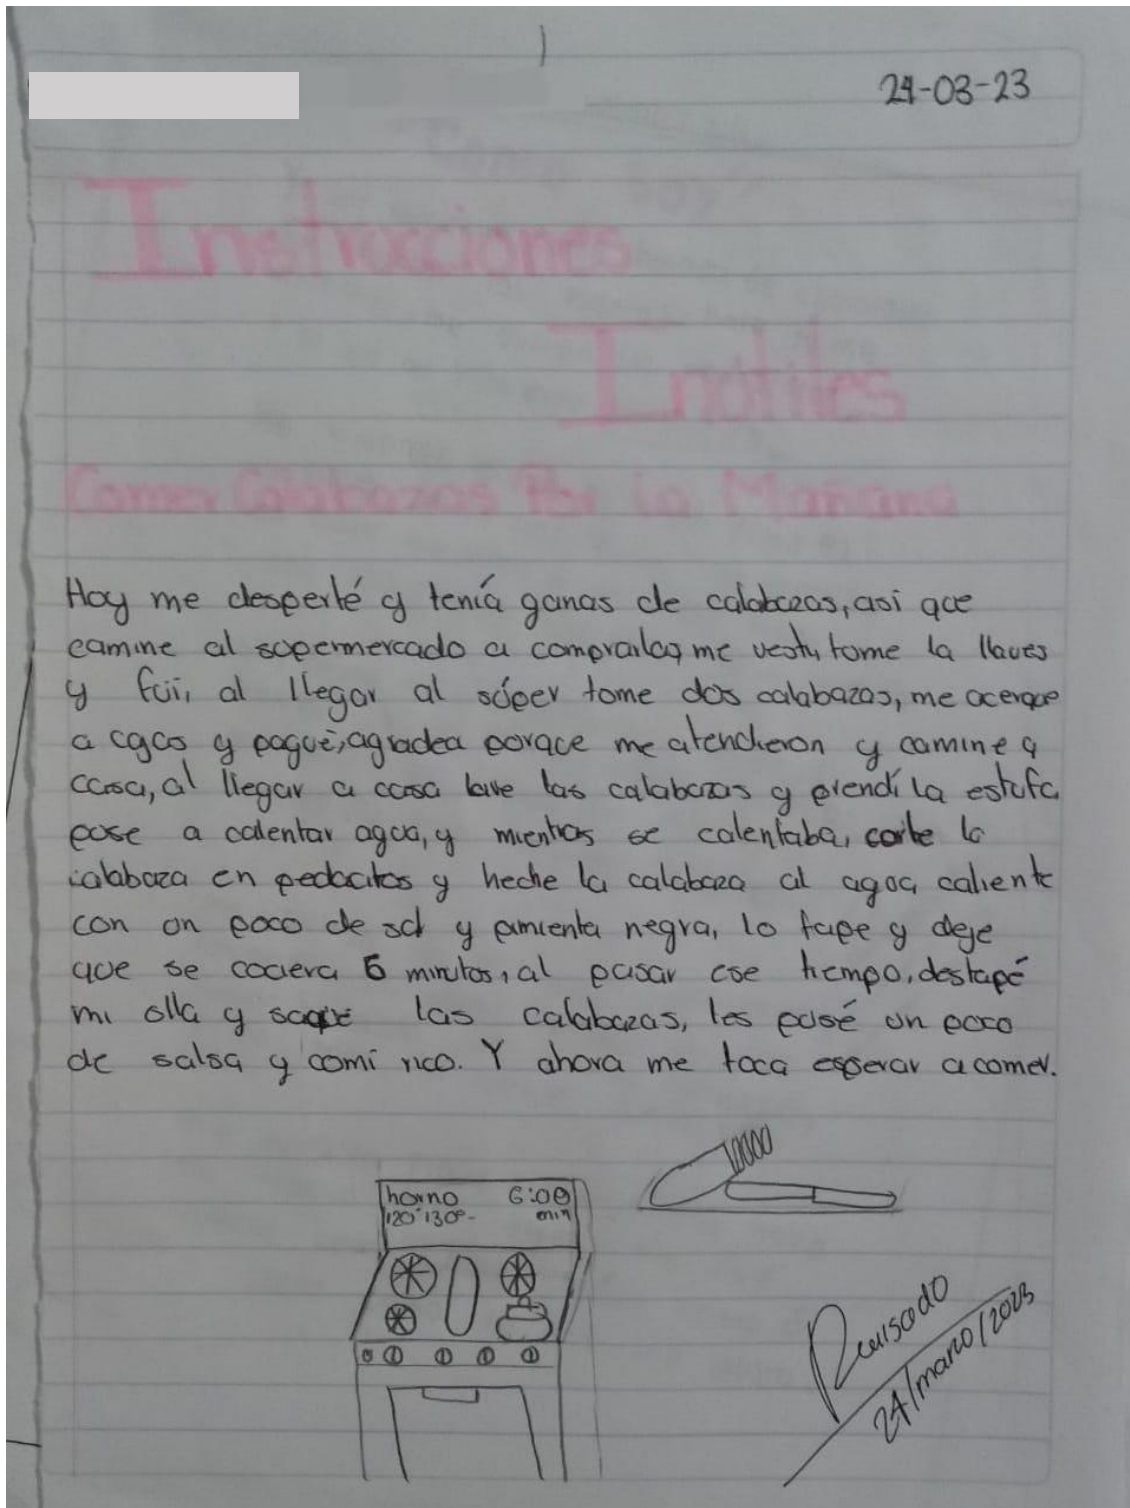 24-03-23
Instrucciones
Inútiles
Comer Calabazas Por la Mañana
Hoy me desperté y tenía ganas de calabazas, asi que
camine al supermercado a comprarlas, me vestí, tome la llaves
y fui, al llegar al súper tome dos calabazas, me acerque
a cajas y pagué, agradeci porque me atendieron y camine a
casa, al llegar a casa lave las calabazas y prendí la estufa
puse a calentar agua, y mientras se calentaba, corte la
calabaza en pedacitos y heche la calabaza al agua caliente
con un poco de sal y pimienta negra, lo tape y deje
que se cociera 6 minutos, al pasar ese tiempo, destapé
mi olla y saque las calabazas, les pusé un poco
de salsa y comi rico. Y ahora me toca esperar a comer.
horno 6:00
120° 130°- min
Revisado
24/marzo/2023